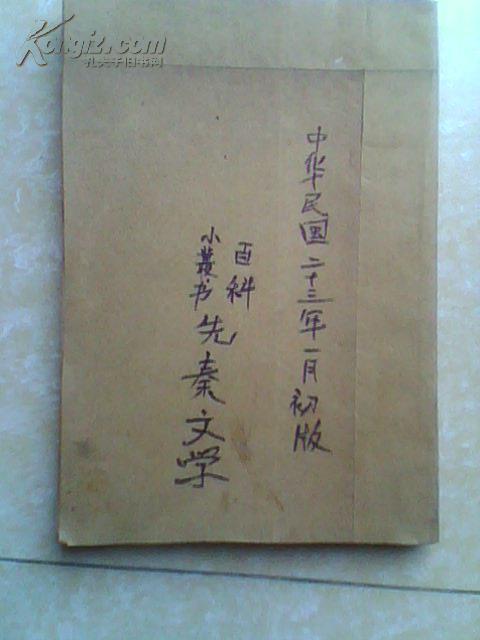 Kongfz.com
孔夫子旧书网
中华民国二十三年一月初版
百科
小叢书
先秦文学